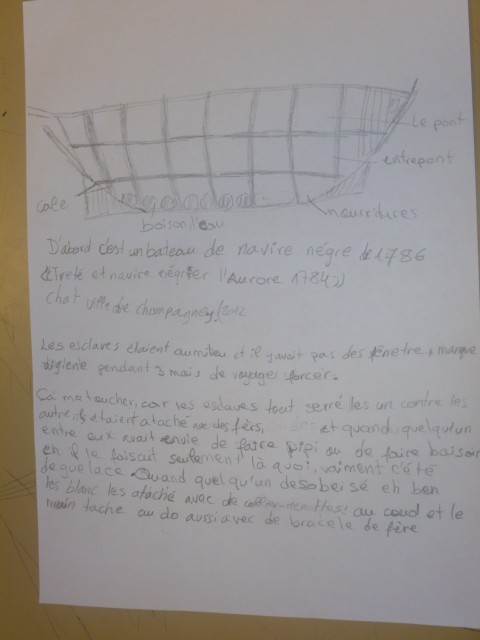 Le pont
entrepont
cale
nourritures
boison l'eau
D'abord c'est un bateau de navire négre de 1786
«Treté et navire négrier l'Aurore 1784»
chat ville de champagney/2012
Les esclaves étaient au milieu et il y avait pas des fênetre, manque
d'igiene pendant 3 mais de voyages forcer.
Ça ma toucher, car les esclaves tout serré les un contre les
autre, ils étaient ataché avec des fèrs, et quand quelqu'un
entre eux avait envie de faire pipi ou de faire baisoin
eh il le faisait seulement là quoi, vaiment c'été
deguelace. Quand quelqu'un desobeisé eh ben
les blanc les ataché avec de au coud et le
main tache au do aussi avec de bracele de fère